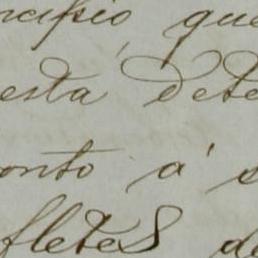 ncipio que
esta dete
onto á s
fletes de